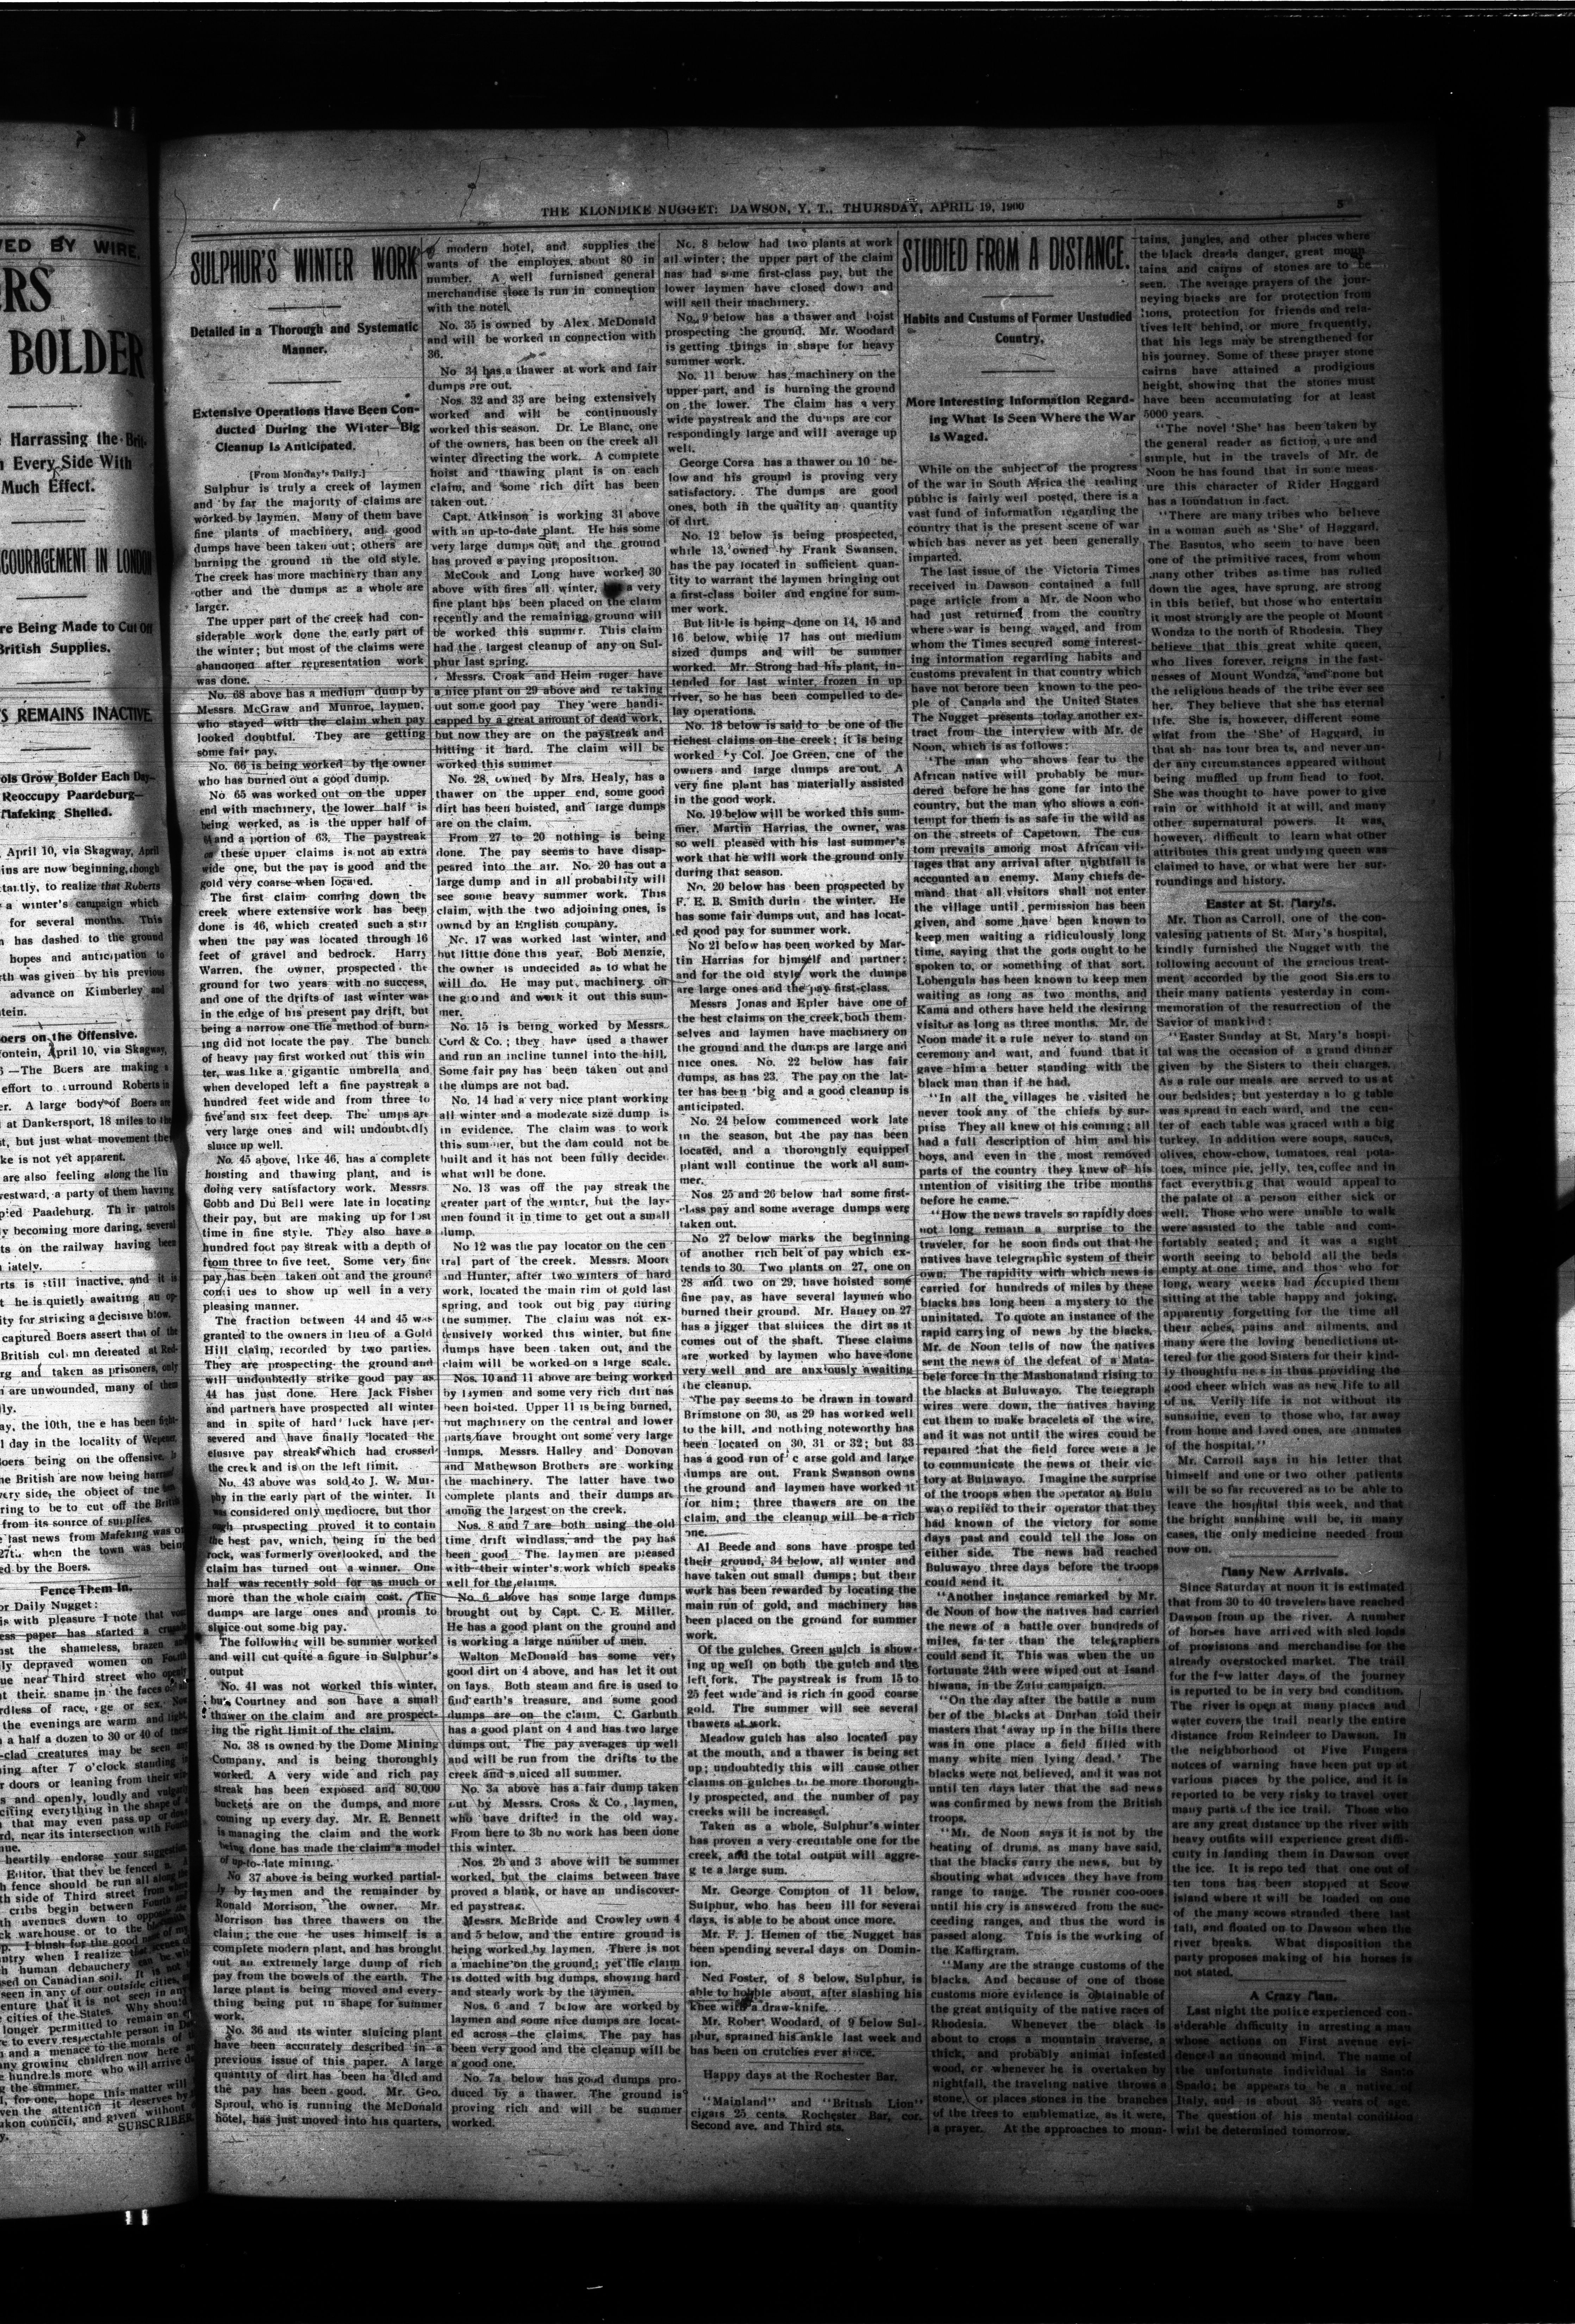 VED BY WIRE.
ERS
BOLDER
Harrassing the Brit-
n Every Side With
Much Effect.
COURAGEMENT IN LONDON
re Being Made to Cut Off
British Supplies.
'S REMAINS INACTIVE.
ols Grow Bolder Each Day—
Reoccupy Paardeburg—
Mafeking Shelled.
April 10, via Skagway, April
ins are now beginning, though
tantly, to realize that Roberts
a winter's campaign which
for several months. This
has dashed to the ground
hopes and anticipation to
th was given by his previous
advance on Kimberley and
tein.
oers on the Offensive.
fontein, April 10, via Skagway,
—The Boers are making a
effort to surround Roberts in
er. A large body of Boers are
at Dankersport, 18 miles to the
st, but just what movement they
ke is not yet apparent.
are also feeling along the lin
westward, a party of them having
pied Paadeburg. Their patrols
y becoming more daring, several
ts on the railway having been
iately.
rts is still inactive, and it is
t he is quietly awaiting an op-
ity for striking a decisive blow.
captured Boers assert that of the
British column defeated at Red-
rg and taken as prisoners, only
n are unwounded, many of them
ly.
ay, the 10th, the e has been fight-
l day in the locality of Wepener,
oers being on the offensive.
he British are now being harrassed
very side, the object of the
ring to be to cut off the British
from its source of supplies.
e last news from Mafeking was of
27th, when the town was being
ed by the Boers.
Fence Them In.
or Daily Nugget:
is with pleasure I note that your
ess paper has started a crusade
nst the shameless, brazen and
ly depraved women on Fourth
ue near Third street who openly
t their shame in the faces of
rdless of race, age or sex. Now
the evenings are warm and light,
a half a dozen to 30 or 40 of these
-clad creatures may be seen any
ing after 7 o'clock standing in
r doors or leaning from their win
s and openly, loudly and vulgarly
citing everything in the shape of
that may even pass up or down
rd, near its intersection with Fourth
nue.
heartily endorse your suggestion,
Editor, that they be fenced
h fence should be run all along the
th side of Third street from where
cribs begin between Fourth and
th avenues down to opposite the
ck warehouse or to the
p. I blush for the good name of my
ntry when I realize that scenes of
h human debauchery can be wit
sed on Canadian soil. It is not
seen in any of our outside cities,
enture that it is not seen in any
cities of the States. Why should
longer permitted to remain an
to every respectable person in
and a menace to the morals of
any growing children now here
hundreds more who will arrive
g the summer.
I, for one, hope this matter will
ven the attention it deserves by
ukon council, and given without
y. SUBSCRIBER.
THE KLONDIKE NUGGET: DAWSON, Y. T., THURSDAY, APRIL 19, 1900
5
SULPHUR'S WINTER WORK
Detailed in a Thorough and Systematic
Manner.
Extensive Operations Have Been Con-
ducted During the Winter—Big
Cleanup Is Anticipated.
[From Monday's Daily.]
Sulphur is truly a creek of laymen
and by far the majority of claims are
worked by laymen. Many of them have
fine plants of machinery, and good
dumps have been taken out; others are
burning the ground in the old style.
The creek has more machinery than any
other and the dumps as a whole are
larger.
The upper part of the creek had con-
siderable work done the early part of
the winter; but most of the claims were
abandoned after representation work
was done.
No. 68 above has a medium dump by
Messrs. McGraw and Munroe, laymen,
who stayed with the claim when pay
looked doubtful. They are getting
some fair pay.
No. 66 is being worked by the owner
who has burned out a good dump.
No 65 was worked out on the upper
end with machinery, the lower half is
being worked, as is the upper half of
64 and a portion of 63. The paystreak
on these upper claims is not an extra
wide one, but the pay is good and the
gold very coarse when located.
The first claim coming down the
creek where extensive work has been
done is 46, which created such a stir
when the pay was located through 16
feet of gravel and bedrock. Harry
Warren, the owner, prospected the
ground for two years with no success,
and one of the drifts of last winter was
in the edge of his present pay drift, but
being a narrow one the method of burn-
ing did not locate the pay. The bunch
of heavy pay first worked out this win
ter, was like a gigantic umbrella and
when developed left a fine paystreak a
hundred feet wide and from three to
five and six feet deep. The umps are
very large ones and will undoubtedly
sluice up well.
No. 45 above, like 46, has a complete
hoisting and thawing plant, and is
doing very satisfactory work. Messrs.
Cobb and Du Bell were late in locating
their pay, but are making up for lost
time in fine style. They also have a
hundred foot pay streak with a depth of
from three to five feet. Some very fine
pay has been taken out and the ground
conti ues to show up well in a very
pleasing manner.
The fraction between 44 and 45 was
granted to the owners in lieu of a Gold
Hill claim, recorded by two parties.
They are prospecting the ground and
will undoubtedly strike good pay as
44 has just done. Here Jack Fisher
and partners have prospected all winter
and in spite of hard luck have per-
severed and have finally located the
elusive pay streak which had crossed
the creek and is on the left limit.
No. 43 above was sold to J. W. Mur-
phy in the early part of the winter. It
was considered only mediocre, but thor
ough prospecting proved it to contain
the best pay, which, being in the bed
rock, was formerly overlooked, and the
claim has turned out a winner. One
half was recently sold for as much or
more than the whole claim cost. The
dumps are large ones and promis to
sluice out some big pay.
The following will be summer worked
and will cut quite a figure in Sulphur's
output
No. 41 was not worked this winter,
but Courtney and son have a small
thawer on the claim and are prospect-
ing the right limit of the claim.
No. 38 is owned by the Dome Mining
Company, and is being thoroughly
worked. A very wide and rich pay
streak has been exposed and 80,000
buckets are on the dumps, and more
coming up every day. Mr. E. Bennett
is managing the claim and the work
being done has made the claim a model
of up-to-date mining.
No 37 above is being worked partial-
ly by laymen and the remainder by
Ronald Morrison, the owner. Mr.
Morrison has three thawers on the
claim; the one he uses himself is a
complete modern plant, and has brought
out an extremely large dump of rich
pay from the bowels of the earth. The
large plant is being moved and every-
thing being put in shape for summer
work.
No. 36 and its winter sluicing plant
have been accurately described in a
previous issue of this paper. A large
quantity of dirt has been ha dled and
the pay has been good. Mr. Geo.
Sproul, who is running the McDonald
hotel, has just moved into his quarters,
a modern hotel, and supplies the
wants of the employes, about 80 in
number. A well furnished general
merchandise store is run in connection
with the notel.
No. 35 is owned by Alex. McDonald
and will be worked in connection with
36.
No 34 has a thawer at work and fair
dumps are out.
Nos. 32 and 33 are being extensively
worked and will be continuously
worked this season. Dr. Le Blanc, one
of the owners, has been on the creek all
winter directing the work. A complete
hoist and thawing plant is on each
claim, and some rich dirt has been
taken out.
Capt. Atkinson is working 31 above
with an up-to-date plant. He has some
very large dumps out, and the ground
has proved a paying proposition.
McCook and Long have worked 30
above with fires all winter, a very
fine plant has been placed on the claim
recently and the remaining ground will
be worked this summer. This claim
had the largest cleanup of any on Sul-
phur last spring.
Messrs. Croak and Heim roger have
a nice plant on 29 above and re taking
out some good pay They were handi-
capped by a great amount of dead work,
but now they are on the paystreak and
hitting it hard. The claim will be
worked this summer
No. 28, owned by Mrs. Healy, has a
thawer on the upper end, some good
dirt has been hoisted, and large dumps
are on the claim.
From 27 to 20 nothing is being
done. The pay seems to have disap-
peared into the air. No. 20 has out a
large dump and in all probability will
see some heavy summer work. This
claim, with the two adjoining ones, is
owned by an English company.
No. 17 was worked last winter, and
but little done this year. Bob Menzie,
the owner is undecided as to what he
will do. He may put machinery on
the ground and work it out this sum-
mer.
No. 15 is being worked by Messrs.
Cord & Co.; they have used a thawer
and run an incline tunnel into the hill.
Some fair pay has been taken out and
the dumps are not bad.
No. 14 had a very nice plant working
all winter and a moderate size dump is
in evidence. The claim was to work
this summer, but the dam could not be
built and it has not been fully decided
what will be done.
No. 13 was off the pay streak the
greater part of the winter, but the lay-
men found it in time to get out a small
dump.
No 12 was the pay locator on the cen
tral part of the creek. Messrs. Moore
and Hunter, after two winters of hard
work, located the main rim of gold last
spring, and took out big pay during
the summer. The claim was not ex-
tensively worked this winter, but fine
dumps have been taken out, and the
claim will be worked on a large scale.
Nos. 10 and 11 above are being worked
by laymen and some very rich dirt has
been hoisted. Upper 11 is being burned,
but machinery on the central and lower
parts have brought out some very large
dumps. Messrs. Halley and Donovan
and Mathewson Brothers are working
the machinery. The latter have two
complete plants and their dumps are
among the largest on the creek.
Nos. 8 and 7 are both using the old
time drift windlass, and the pay has
been good The laymen are pleased
with their winter's work which speaks
well for the claims.
No. 6 above has some large dumps
brought out by Capt. C. E. Miller.
He has a good plant on the ground and
is working a large number of men.
Walton McDonald has some very
good dirt on 4 above, and has let it out
on lays. Both steam and fire is used to
find earth's treasure, and some good
dumps are on the claim. C. Garbuth
has a good plant on 4 and has two large
dumps out. The pay averages up well
and will be run from the drifts to the
creek and s uiced all summer.
No. 3a above has a fair dump taken
out by Messrs. Cross & Co., laymen,
who have drifted in the old way.
From here to 3b no work has been done
this winter.
Nos. 2b and 3 above will be summer
worked, but the claims between have
proved a blank, or have an undiscover-
ed paystreak.
Messrs. McBride and Crowley own 4
and 5 below, and the entire ground is
being worked by laymen. There is not
a machine on the ground; yet the claim
is dotted with big dumps, showing hard
and steady work by the laymen.
Nos. 6 and 7 below are worked by
laymen and some nice dumps are locat-
ed across the claims. The pay has
been very good and the cleanup will be
a good one.
No. 7a below has good dumps pro-
duced by a thawer. The ground is
proving rich and will be summer
worked.
No. 8 below had two plants at work
all winter; the upper part of the claim
has had some first-class pay, but the
lower laymen have closed down and
will sell their machinery.
No. 9 below has a thawer and hoist
prospecting the ground. Mr. Woodard
is getting things in shape for heavy
summer work.
No. 11 below has machinery on the
upper part, and is burning the ground
on the lower. The claim has a very
wide paystreak and the dumps are cor
respondingly large and will average up
well.
George Corsa has a thawer on 10 be-
low and his ground is proving very
satisfactory. The dumps are good
ones, both in the quality an quantity
of dirt.
No. 12 below is being prospected,
while 13, owned by Frank Swansen,
has the pay located in sufficient quan-
tity to warrant the laymen bringing out
a first-class boiler and engine for sum-
mer work.
But little is being done on 14, 15 and
16 below, while 17 has out medium
sized dumps and will be summer
worked. Mr. Strong had his plant, in-
tended for last winter, frozen in up
river, so he has been compelled to de-
lay operations.
No. 18 below is said to be one of the
richest claims on the creek; it is being
worked by Col. Joe Green, one of the
owners and large dumps are out. A
very fine plant has materially assisted
in the good work.
No. 19 below will be worked this sum-
mer. Martin Harrias, the owner, was
so well pleased with his last summer's
work that he will work the ground only
during that season.
No. 20 below has been prospected by
F. E. B. Smith durin the winter. He
has some fair dumps out, and has locat-
ed good pay for summer work.
No 21 below has been worked by Mar-
tin Harrias for himself and partner;
and for the old style work the dumps
are large ones and the pay first-class.
Messrs Jonas and Epler have one of
the best claims on the creek, both them
selves and laymen have machinery on
the ground and the dumps are large and
nice ones. No. 22 below has fair
dumps, as has 23. The pay on the lat-
ter has been big and a good cleanup is
anticipated.
No. 24 below commenced work late
in the season, but the pay has been
located, and a thoroughly equipped
plant will continue the work all sum-
mer.
Nos. 25 and 26 below had some first-
class pay and some average dumps were
taken out.
No 27 below marks the beginning
of another rich belt of pay which ex-
tends to 30. Two plants on 27, one on
28 and two on 29, have hoisted some
fine pay, as have several laymen who
burned their ground. Mr. Haney on 27
has a jigger that sluices the dirt as it
comes out of the shaft. These claims
are worked by laymen who have done
very well and are anxiously awaiting
the cleanup.
The pay seems to be drawn in toward
Brimstone on 30, as 29 has worked well
to the hill, and nothing noteworthy has
been located on 30, 31 or 32; but 33
has a good run of c arse gold and large
dumps are out. Frank Swanson owns
the ground and laymen have worked it
for him; three thawers are on the
claim, and the cleanup will be a rich
one.
Al Beede and sons have prospe ted
their ground, 34 below, all winter and
have taken out small dumps; but their
work has been rewarded by locating the
main run of gold, and machinery has
been placed on the ground for summer
work.
Of the gulches, Green gulch is show-
ing up well on both the gulch and the
left fork. The paystreak is from 15 to
25 feet wide and is rich in good coarse
gold. The summer will see several
thawers at work.
Meadow gulch has also located pay
at the mouth, and a thawer is being set
up; undoubtedly this will cause other
claims on gulches to be more thorough-
ly prospected, and the number of pay
creeks will be increased.
Taken as a whole, Sulphur's winter
has proven a very creditable one for the
creek, and the total output will aggre-
g te a large sum.
Mr. George Compton of 11 below,
Sulphur, who has been ill for several
days, is able to be about once more.
Mr. F. J. Hemen of the Nugget has
been spending several days on Domin-
ion.
Ned Foster, of 8 below, Sulphur, is
able to hobble about, after slashing his
knee with a draw-knife.
Mr. Rober Woodard, of 9 below Sul-
phur, sprained his ankle last week and
has been on crutches ever since.
Happy days at the Rochester Bar.
"Mainland" and "British Lion"
cigars 25 cents. Rochester Bar, cor.
Second ave. and Third sts.
STUDIED FROM A DISTANCE.
Habits and Customs of Former Unstudied
Country.
More Interesting Information Regard-
ing What Is Seen Where the War
Is Waged.
While on the subject of the progress
of the war in South Africa the reading
public is fairly well posted, there is a
vast fund of information regarding the
country that is the present scene of war
which has never as yet been generally
imparted.
The last issue of the Victoria Times
received in Dawson contained a full
page article from a Mr. de Noon who
had just returned from the country
where war is being waged, and from
whom the Times secured some interest-
ing information regarding habits and
customs prevalent in that country which
have not before been known to the peo-
ple of Canada and the United States
The Nugget presents today another ex-
tract from the interview with Mr. de
Noon, which is as follows:
"The man who shows fear to the
African native will probably be mur-
dered before he has gone far into the
country, but the man who shows a con-
tempt for them is as safe in the wild as
on the streets of Capetown. The cus-
tom prevails among most African vil-
lages that any arrival after nightfall is
accounted an enemy. Many chiefs de-
mand that all visitors shall not enter
the village until permission has been
given, and some have been known to
keep men waiting a ridiculously long
time, saying that the gods ought to be
spoken to, or something of that sort.
Lobengula has been known to keep men
waiting as long as two months, and
Kama and others have held the desiring
visitor as long as three months. Mr. de
Noon made it a rule never to stand on
ceremony and wait, and found that it
gave him a better standing with the
black man than if he had.
"In all the villages he visited he
never took any of the chiefs by sur-
prise They all knew of his coming; all
had a full description of him and his
boys, and even in the most removed
parts of the country they knew of his
intention of visiting the tribe months
before he came.
"How the news travels so rapidly does
not long remain a surprise to the
traveler, for he soon finds out that the
natives have telegraphic system of their
own. The rapidity with which news is
carried for hundreds of miles by these
blacks has long been a mystery to the
uninitiated. To quote an instance of the
rapid carrying of news by the blacks,
Mr. de Noon tells of now the natives
sent the news of the defeat of a Mata-
bele force in the Mashonaland rising to
the blacks at Buluwayo. The telegraph
wires were down, the natives having
cut them to make bracelets of the wire,
and it was not until the wires could be
repaired that the field force were a le
to communicate the news of their vic-
tory at Buluwayo. Imagine the surprise
of the troops when the operator at Bulu
wayo replied to their operator that they
had known of the victory for some
days past and could tell the loss on
either side. The news had reached
Buluwayo three days before the troops
could send it.
"Another instance remarked by Mr.
de Noon of how the natives had carried
the news of a battle over hundreds of
miles, fa ter than the telegraphers
could send it. This was when the un
fortunate 24th were wiped out at Isand-
hlwana, in the Zulu campaign.
"On the day after the battle a num
ber of the blacks at Durban told their
masters that 'away up in the hills there
was in one place a field filled with
many white men lying dead.' The
blacks were not believed, and it was not
until ten days later that the sad news
was confirmed by news from the British
troops.
"Mr. de Noon says it is not by the
beating of drums, as many have said,
that the blacks carry the news, but by
shouting what advices they have from
range to range. The runner coo-ooes
until his cry is answered from the suc-
ceeding ranges, and thus the word is
passed along. This is the working of
the Kaffirgram.
"Many are the strange customs of the
blacks. And because of one of those
customs more evidence is obtainable of
the great antiquity of the native races of
Rhodesia. Whenever the black is
about to cross a mountain traverse, a
thick, and probably animal infested
wood, or whenever he is overtaken by
nightfall, the traveling native throws a
stone, or places stones in the branches
of the trees to emblematize, as it were,
a prayer. At the approaches to moun-
tains, jungles, and other places where
the black dreads danger, great moun
tains and cairns of stones are to be
seen. The average prayers of the jour-
neying blacks are for protection from
lions, protection for friends and rela-
tives left behind, or more frequently,
that his legs may be strengthened for
his journey. Some of these prayer stone
cairns have attained a prodigious
height, showing that the stones must
have been accumulating for at least
5000 years.
"The novel 'She' has been taken by
the general reader as fiction, pure and
simple, but in the travels of Mr. de
Noon he has found that in some meas-
ure this character of Rider Haggard
has a foundation in fact.
"There are many tribes who believe
in a woman such as 'She' of Haggard.
The Basutos, who seem to have been
one of the primitive races, from whom
many other tribes as time has rolled
down the ages, have sprung, are strong
in this belief, but those who entertain
it most strongly are the people of Mount
Wondza to the north of Rhodesia. They
believe that this great white queen,
who lives forever, reigns in the fast-
nesses of Mount Wondza, and none but
the religious heads of the tribe ever see
her. They believe that she has eternal
life. She is, however, different some
what from the 'She' of Haggard, in
that sh has four brea ts, and never un-
der any circumstances appeared without
being muffled up from head to foot.
She was thought to have power to give
rain or withhold it at will, and many
other supernatural powers. It was,
however, difficult to learn what other
attributes this great undying queen was
claimed to have, or what were her sur-
roundings and history.
Easter at St. Mary's.
Mr. Thomas Carroll, one of the con-
valesing patients of St. Mary's hospital,
kindly furnished the Nugget with the
following account of the gracious treat-
ment accorded by the good Sisters to
their many patients yesterday in com-
memoration of the resurrection of the
Savior of mankind:
"Easter Sunday at St. Mary's hospi-
tal was the occasion of a grand dinner
given by the Sisters to their charges.
As a rule our meals are served to us at
our bedsides; but yesterday a lo g table
was spread in each ward, and the cen-
ter of each table was graced with a big
turkey. In addition were soups, sauces,
olives, chow-chow, tomatoes, real pota-
toes, mince pie, jelly, tea, coffee and in
fact everything that would appeal to
the palate of a person either sick or
well. Those who were unable to walk
were assisted to the table and com-
fortably seated; and it was a sight
worth seeing to behold all the beds
empty at one time, and thos who for
long, weary weeks had occupied them
sitting at the table happy and joking,
apparently forgetting for the time all
their aches, pains and ailments, and
many were the loving benedictions ut-
tered for the good Sisters for their kind-
ly thoughtfu ne s in thus providing the
good cheer which was as new life to all
of us. Verily life is not without its
sunshine, even to those who, far away
from home and loved ones, are inmates
of the hospital."
Mr. Carroll says in his letter that
himself and one or two other patients
will be so far recovered as to be able to
leave the hospital this week, and that
the bright sunshine will be, in many
cases, the only medicine needed from
now on.
Many New Arrivals.
Since Saturday at noon it is estimated
that from 30 to 40 travelers have reached
Dawson from up the river. A number
of horses have arrived with sled loads
of provisions and merchandise for the
already overstocked market. The trail
for the few latter days of the journey
is reported to be in very bad condition.
The river is open at many places and
water covers the trail nearly the entire
distance from Reindeer to Dawson. In
the neighborhood of Five Fingers
notces of warning have been put up at
various places by the police, and it is
reported to be very risky to travel over
many parts of the ice trail. Those who
are any great distance up the river with
heavy outfits will experience great diffi-
culty in landing them in Dawson over
the ice. It is repo ted that one out of
ten tons has been stopped at Scow
island where it will be loaded on one
of the many scows stranded there last
fall, and floated on to Dawson when the
river breaks. What disposition the
party proposes making of his horses is
not stated.
A Crazy Man.
Last night the police experienced con-
siderable difficulty in arresting a man
whose actions on First avenue evi-
denced an unsound mind. The name of
the unfortunate individual is Santo
Spado; he appears to be a native of
Italy, and is about 35 years of age.
The question of his mental condition
will be determined tomorrow.